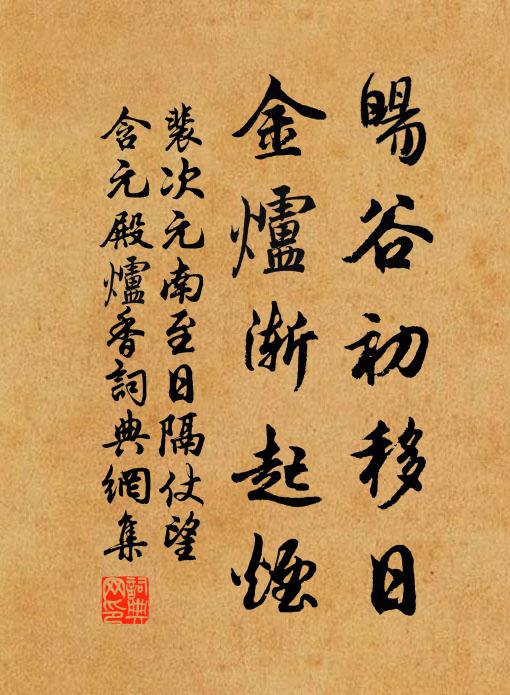 暘谷初移日
金爐漸起煙
裴次元南至日隔仗望
含元殿爐香詞典網集
詞典
网印